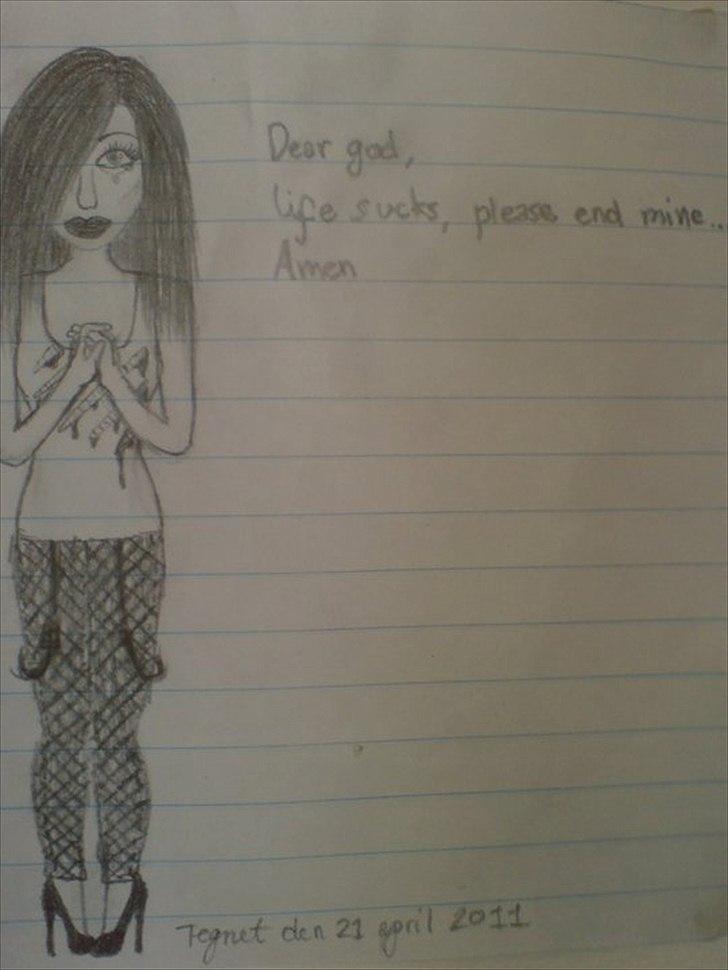 Dear god,
life sucks, please end mine..
Amen
Tegnet den 21 april 2011